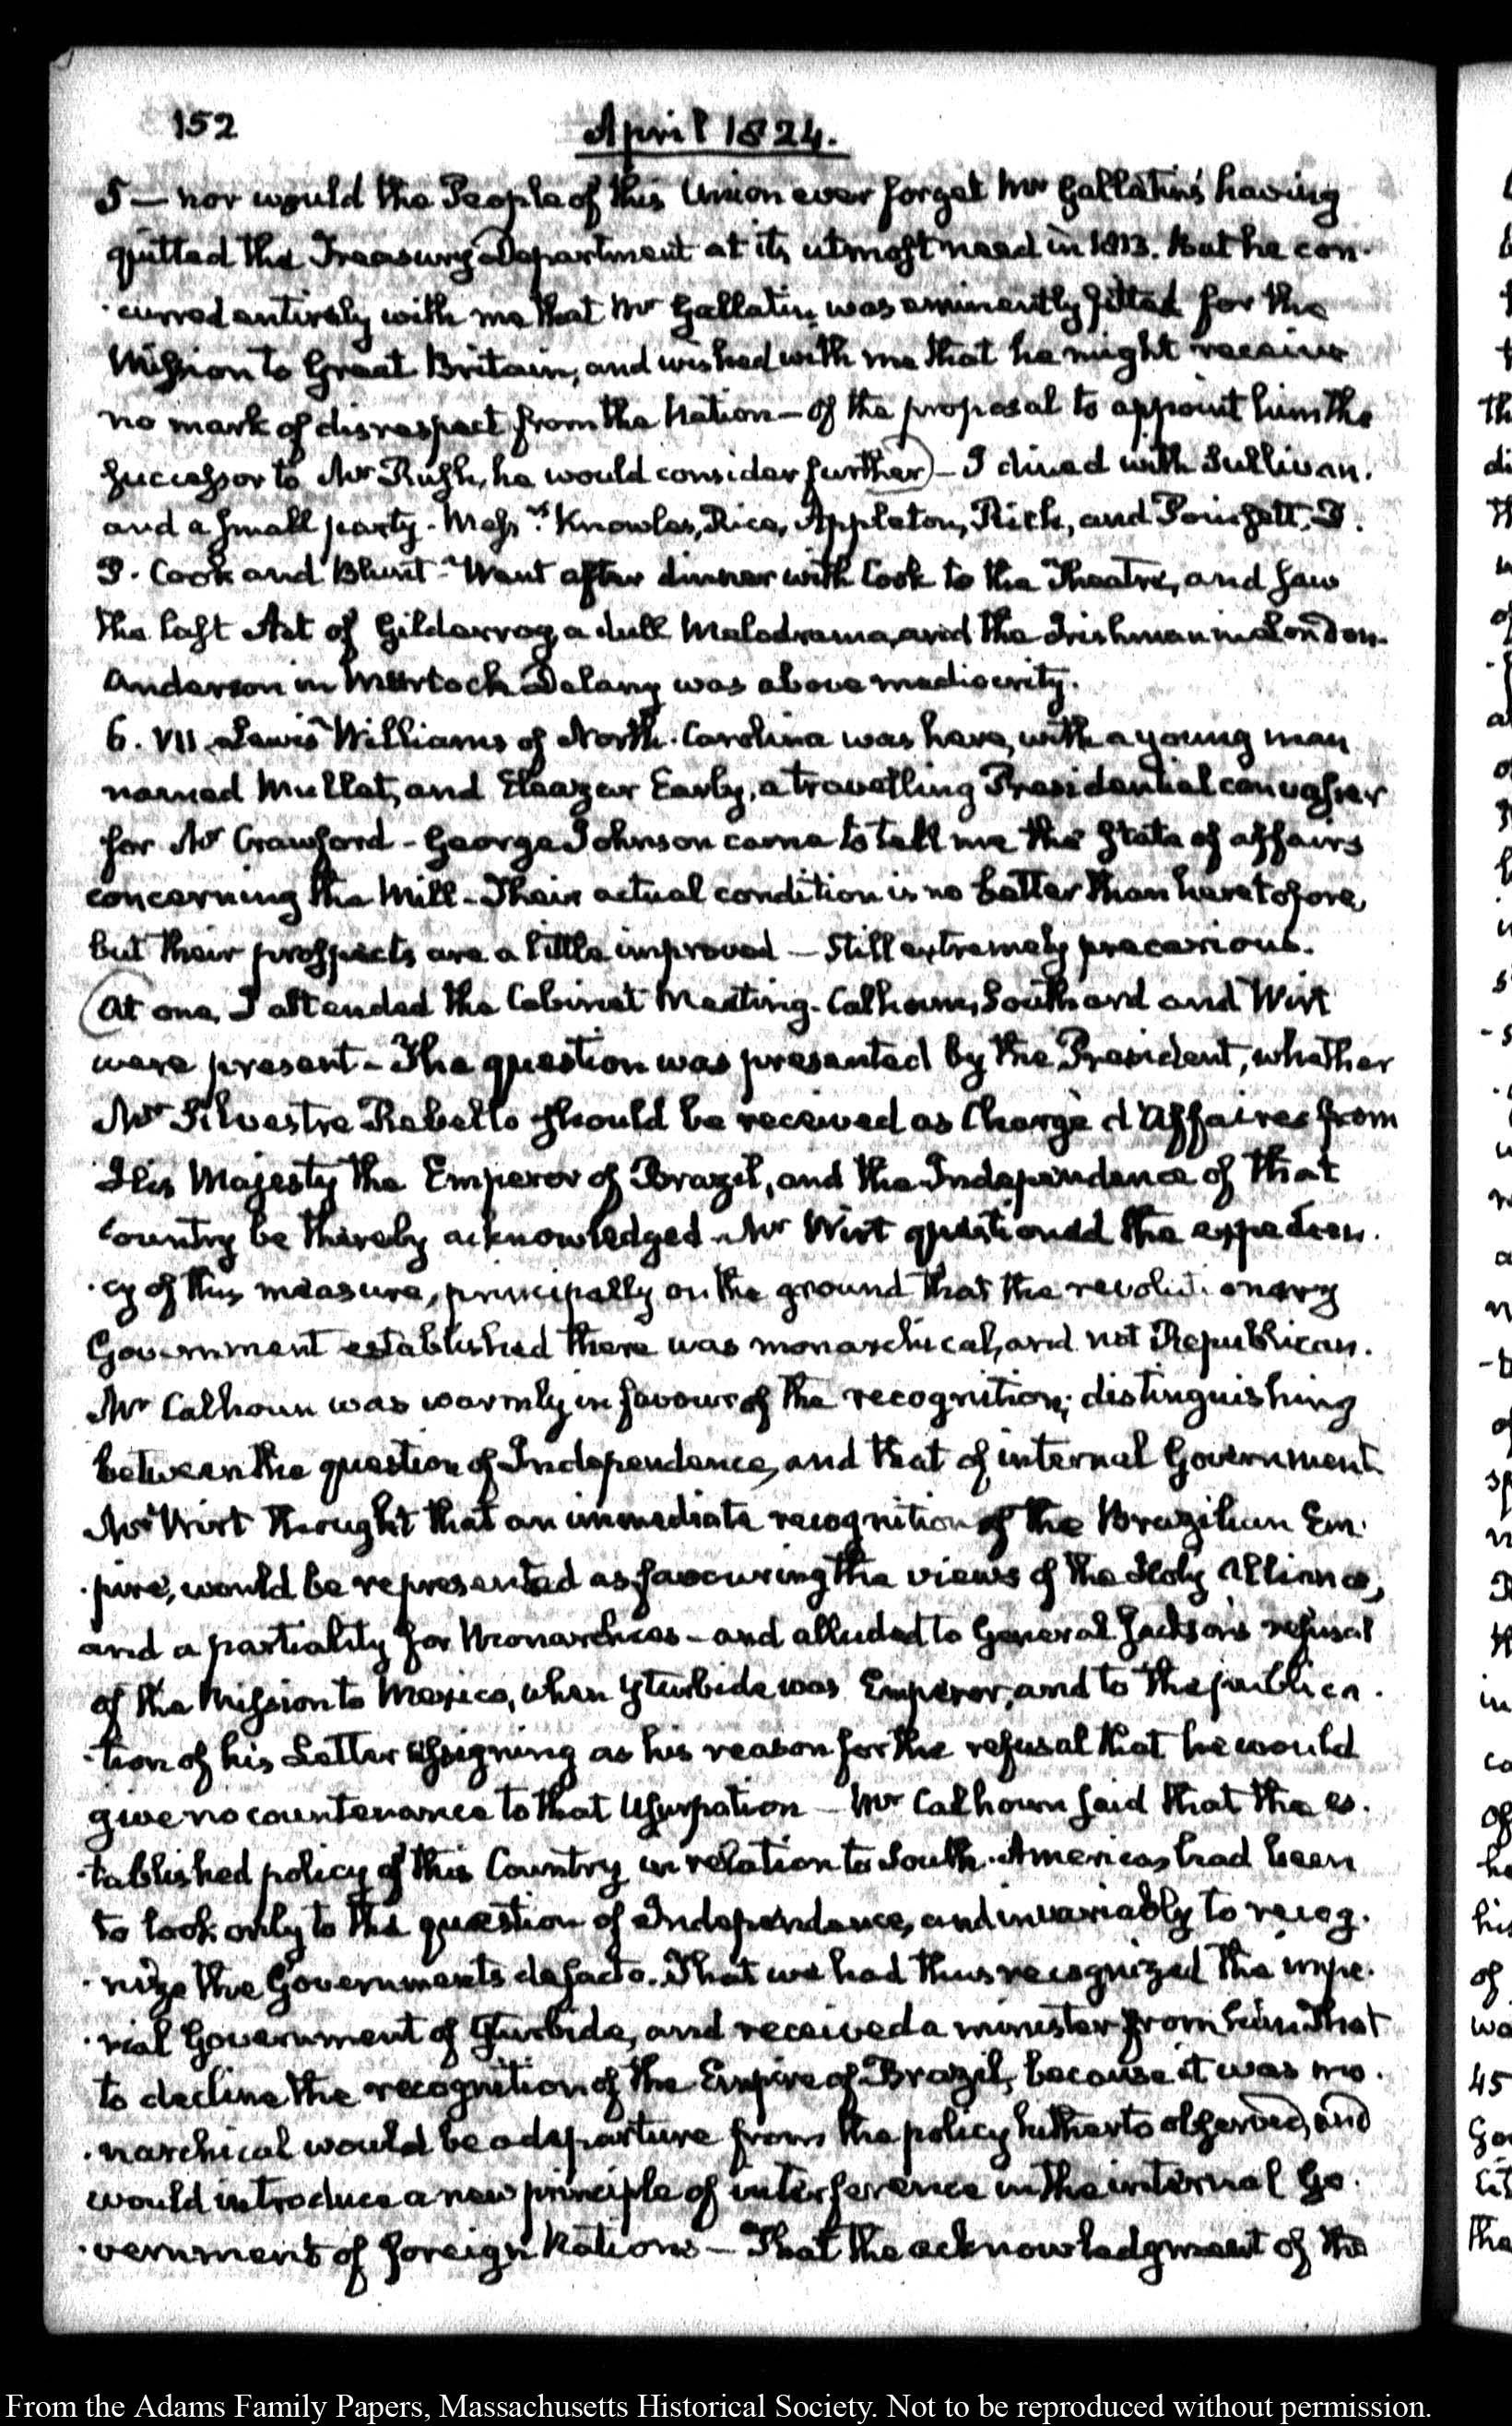 152
April 1824.
5 — nor would the People of this Union ever forget Mr Gallatin's having
quitted the Treasury Department at its utmost need in 1813. But he con-
-curred entirely with me that Mr Gallatin was eminently fitted for the
Mission to Great Britain, and wished with me that he might receive
no mark of disrespect from the Nation — of the proposal to appoint him the
successor to Mr Rush, he would consider further) — I dined with Sullivan.
and a small party. Messrs. Knowles, Rice, Appleton, Rich, and Poinsett, D.
P. Cook and Blunt — Went after dinner with Cook to the Theatre, and saw
the last Act of Gilderroy, a dull Melodrama, and the Irishman in London.
Anderson in Murtoch Delany was above mediocrity.
6. VII. Lewis Williams of North-Carolina was here, with a young man
named Mullet, and Eleazer Early, a travelling Presidential canvasser
for Mr Crawford — George Johnson came to tell me the state of affairs
concerning the Mill — Their actual condition is no better than heretofore,
but their prospects are a little improved — Still extremely precarious.
(At one, I attended the Cabinet Meeting. Calhoun, Southard and Wirt
were present — The question was presented by the President, whether
Mr Silvestre Rebello should be received as Chargé d'Affaires from
His Majesty the Emperor of Brazil, and the Independence of that
Country be thereby acknowledged. Mr Wirt questioned the expedien-
-cy of this measure, principally on the ground that the revolutionary
Government established there was monarchical, and not Republican.
Mr Calhoun was warmly in favour of the recognition; distinguishing
between the question of Independence, and that of internal Government
Mr Wirt thought that an immediate recognition of the Brazilian Em-
-pire, would be represented as favouring the views of the Holy Alliance,
and a partiality for Monarchies — and alluded to General Jackson's refusal
of the Mission to Mexico, when Yturbide was Emperor, and to the publica-
-tion of his Letter assigning as his reason for the refusal that he would
give no countenance to that Usurpation — Mr Calhoun said that the es-
-tablished policy of this Country in relation to South-America, had been
to look only to the question of Independence, and invariably to recog-
-nize the Governments de facto. That we had thus recognized the impe-
-rial Government of Yturbide, and received a minister from him. That
to decline the recognition of the Empire of Brazil, because it was mo-
-narchical would be a departure from the policy hitherto observed, and
would introduce a new principle of interference in the internal Go-
-vernment of foreign Nations — That the acknowledgment of the
From the Adams Family Papers, Massachusetts Historical Society. Not to be reproduced without permission.